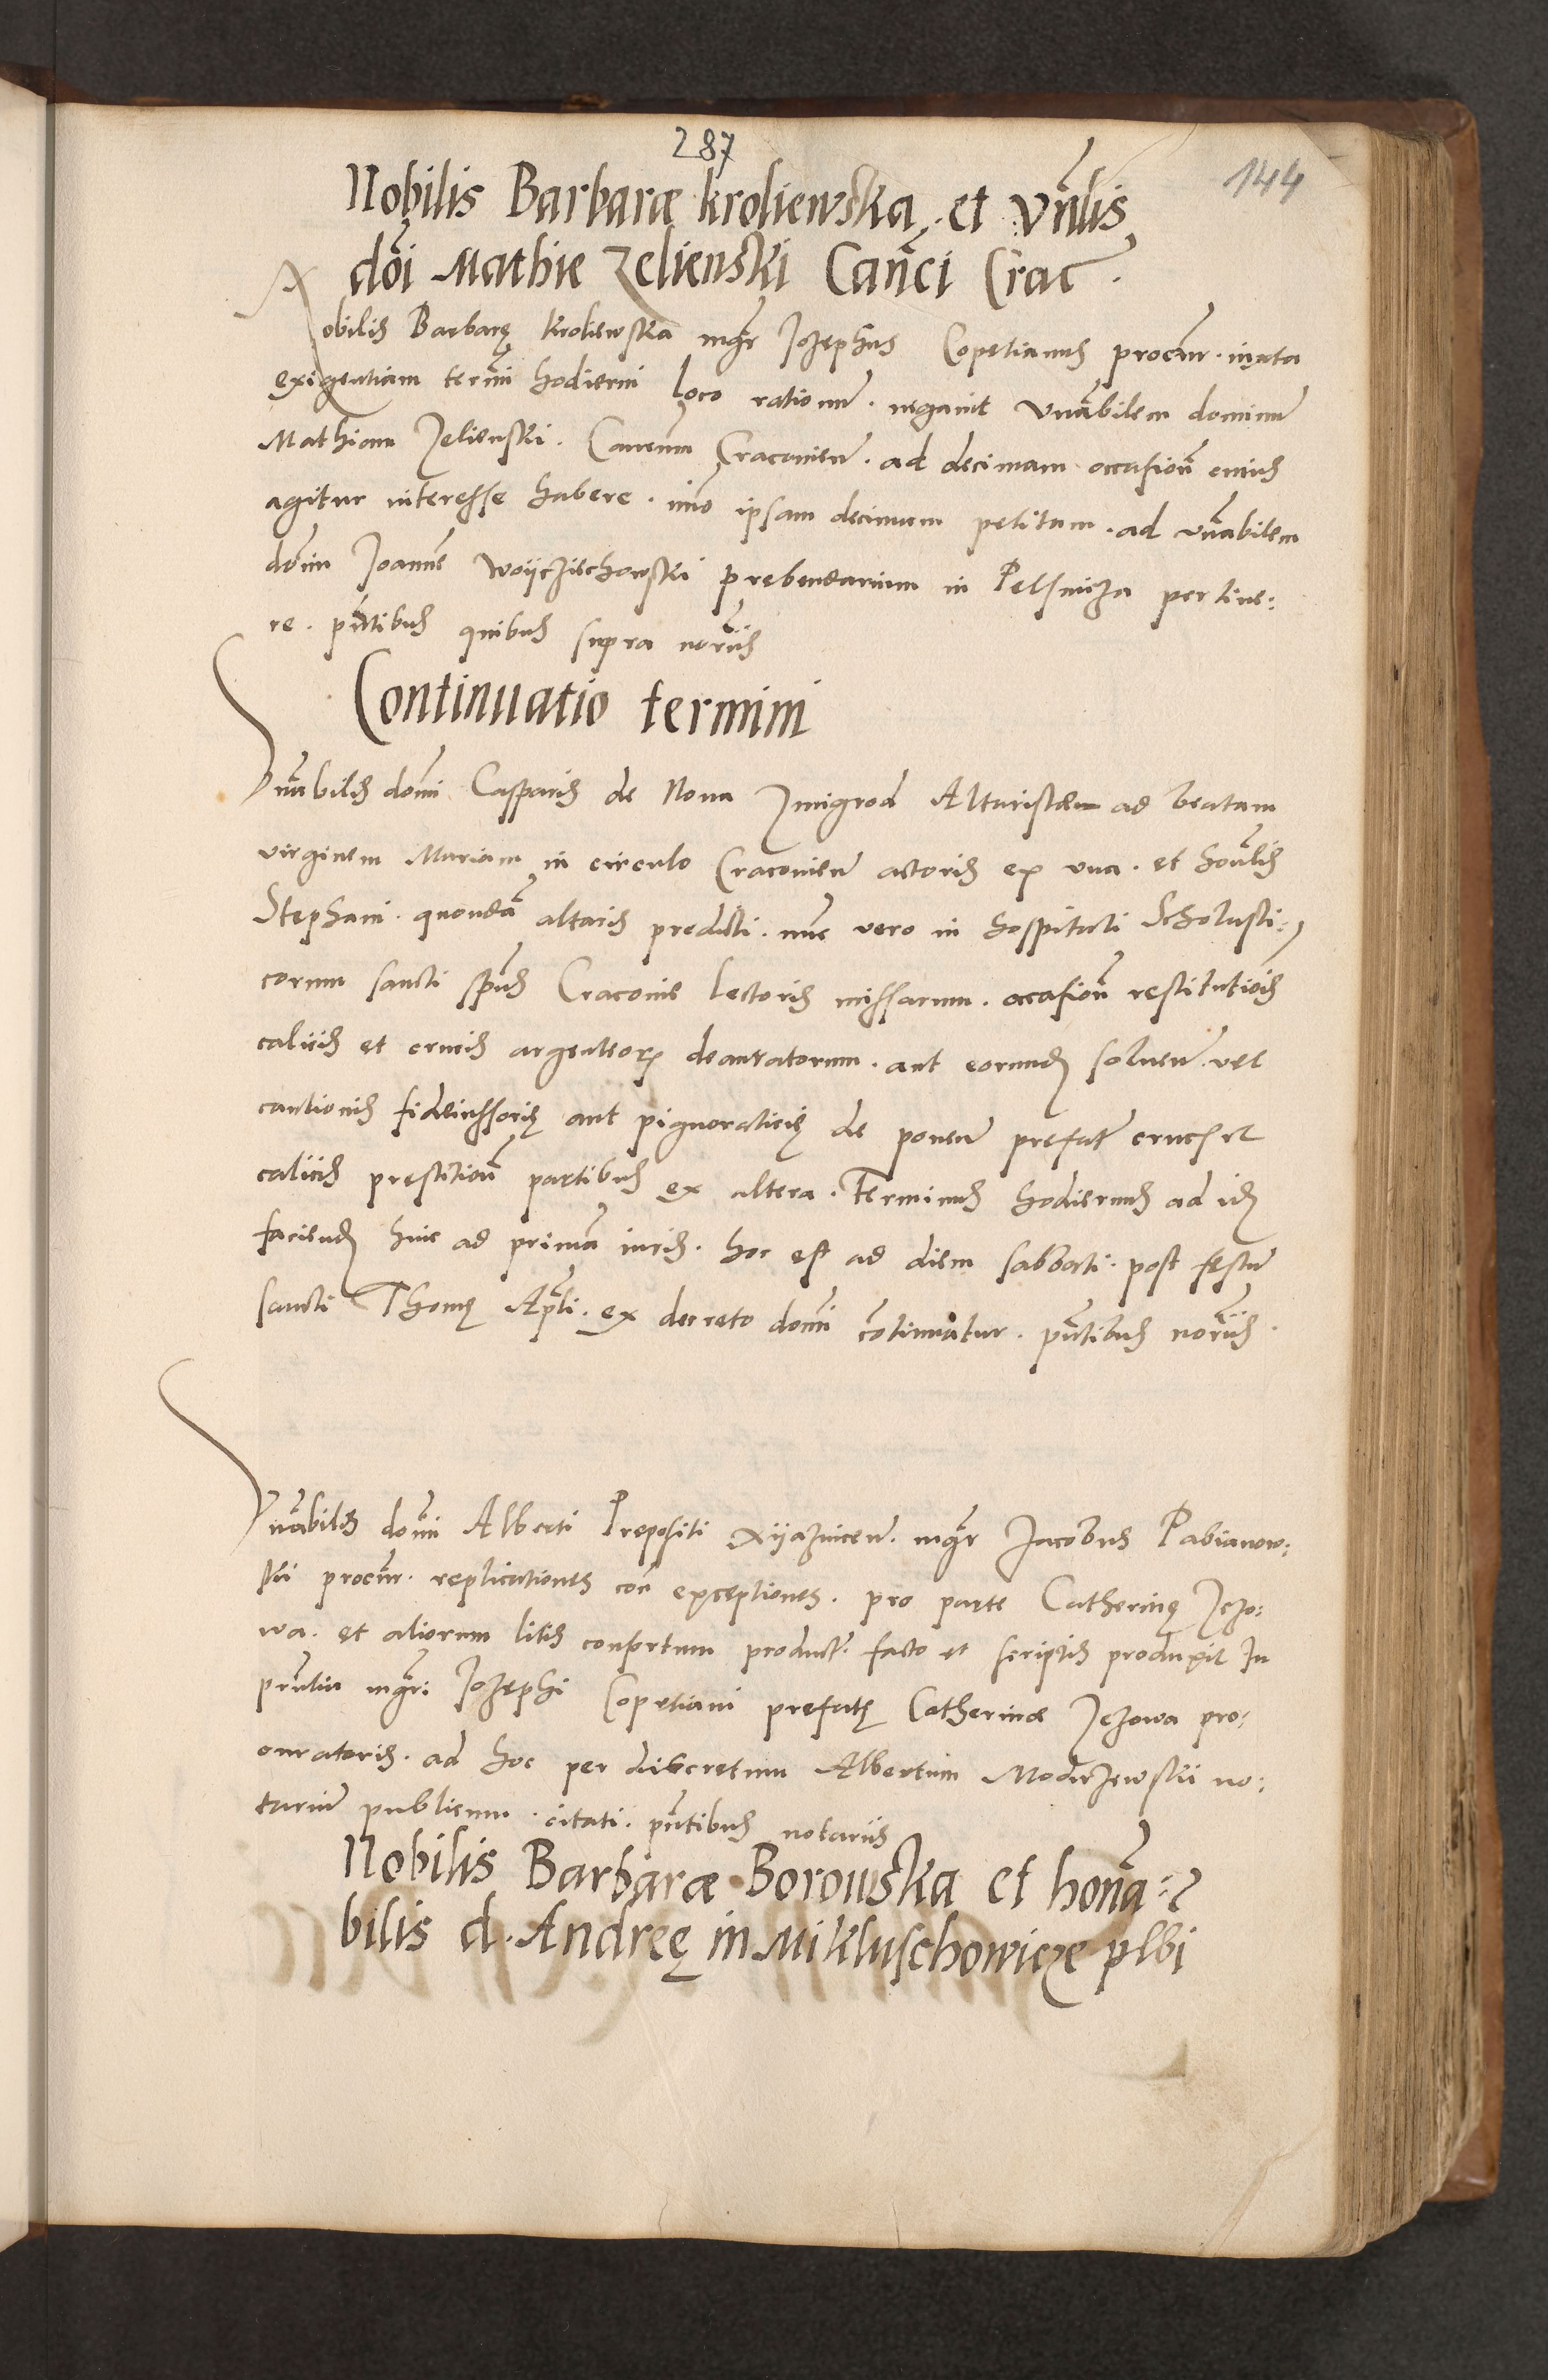 287
144
Nobilis Barbaræ kroliewska et Vnlis
doni Mathie Zelienski Canci Crac
Nobilis Barbarę Kroliewska mgr Jozephus Copetianus procur. iuxta
exigentiam termi hodierni loco rationum. negauit Vnabilem dominum
Mathiam Zelienski. Canonum Cracouien. ad decimam occasione cuius
agitur interesse habere. imo ipsam decimam petitam. ad vnabilem
domin Joanne Woijcziechowski prebendarium in Pelsnicza pertine:
re. pntibus quibus supra notriis
Continuatio termini
Vnabilis domi Casparis de Noua Zmigrod Altaristæ ad beatam
virginem Mariam in circulo Cracouien actoris ex vna. et honlis
Stephani. quondã altaris predicti. nunc vero in hospitali Scholasti:
corum sancti spus Cracouie lectoris missarum. occasione restitutiois
calicis et crucis argenteorum deauratorum. aut eorund soluen. vel
cautionis fideiussorię aut pignoraticię de ponen prefat crucis et
calicis prestitione partibus ex altera. Terminus hodiernus ad id
faciend huic ad primã iuris. hoc est ad diem sabbati. post festum
sancti Thomę Apli. ex decreto domi cõtinuatur. pntibus notriis.
Vnabilis domi Alberti Prepositi Xijaznicen. mgr Jacobus Pabianow:
ski procur. replicationes con exceptiones. pro parte Catherinę Jezo:
wa. et aliorum litis consortum product. facto et scriptis produxit In
pntia mgri Jozephi Copetiani prefatę Catherinæ Jezowa pro:
curatoris. ad hoc per discretum Albertum Modrzewski no:
tarium publicum. citati. pntibus notariis
Nobilis Barbaræ Borowska et honã:
bilis d. Andreę in Mikluschowicze plbi